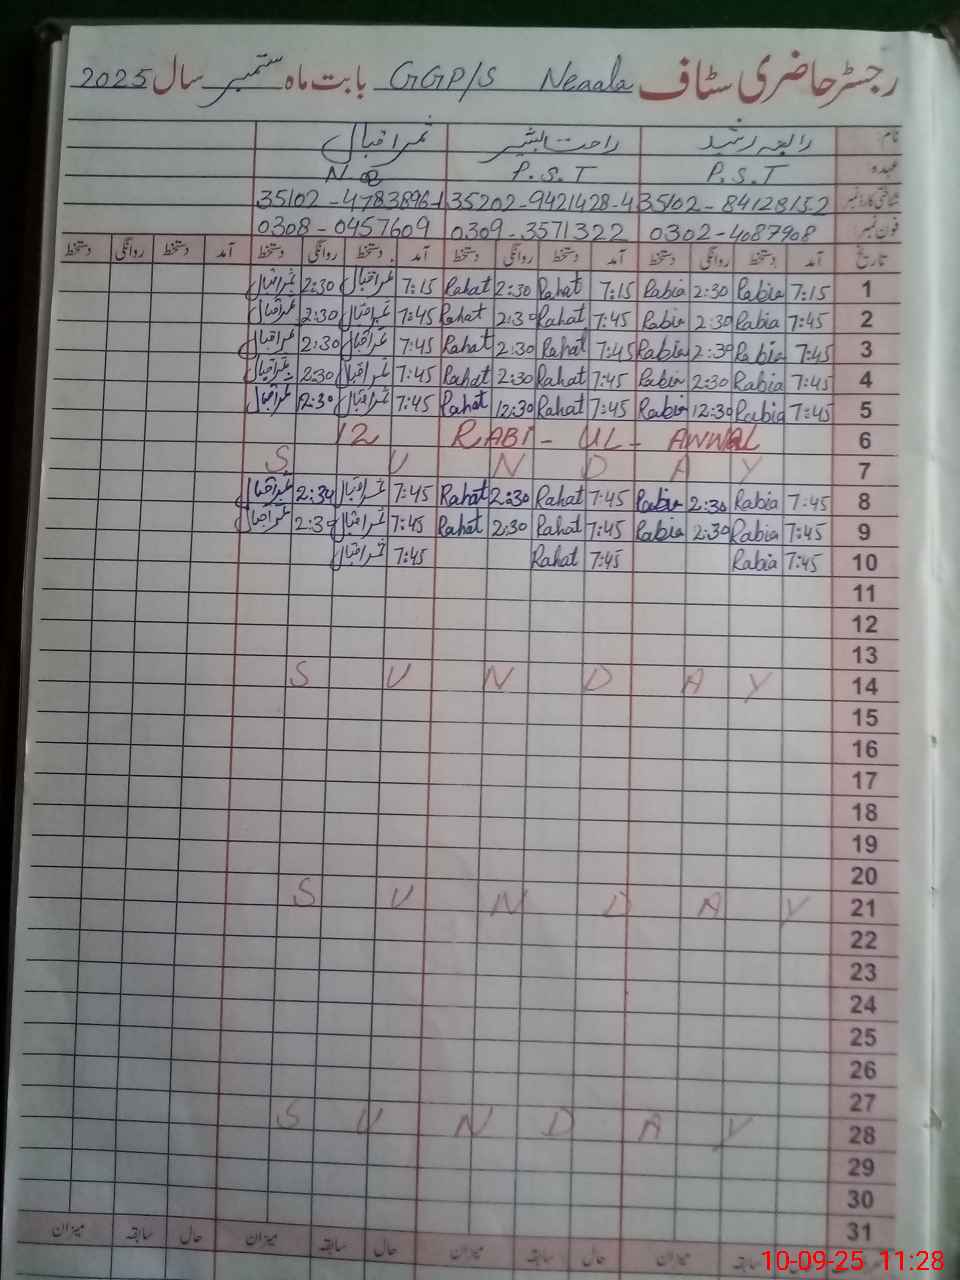 رجسٹر حاضری سٹاف GGP/S Neaala بابت ماہ ستمبر سال 2025
نام: رابعہ رشید راحت البشیر ثمر اقبال
عہدہ P.S.T P.S.T
شناختی کارڈ نمبر 35102-84128152 35202-9421428-4 35102-4783896-1
فون نمبر 0302-4087908 0309-3571322 0308-0457609
تاریخ آمد دستخط روانگی دستخط آمد دستخط روانگی دستخط آمد دستخط روانگی دستخط آمد دستخط روانگی دستخط
1 7:15 Rabia 2:30 Rabia 7:15 Rahat 2:30 Rahat 7:15 ثمر اقبال 2:30 ثمر اقبال
2 7:45 Rabia 2:30 Rabia 7:45 Rahat 2:30 Rahat 7:45 ثمر اقبال 2:30 ثمر اقبال
3 7:45 Rabia 2:30 Rabia 7:45 Rahat 2:30 Rahat 7:45 ثمر اقبال 2:30 ثمر اقبال
4 7:45 Rabia 2:30 Rabia 7:45 Rahat 2:30 Rahat 7:45 ثمر اقبال 2:30 ثمر اقبال
5 7:45 Rabia 12:30 Rabia 7:45 Rahat 12:30 Rahat 7:45 ثمر اقبال 12:30 ثمر اقبال
6 12 RABI-UL-AWWAL
7 SUNDAY
8 7:45 Rabia 2:30 Rabia 7:45 Rahat 2:30 Rahat 7:45 ثمر اقبال 2:30 ثمر اقبال
9 7:45 Rabia 2:30 Rabia 7:45 Rahat 2:30 Rahat 7:45 ثمر اقبال 2:30 ثمر اقبال
10 7:45 Rabia 7:45 Rahat 7:45 ثمر اقبال
11
12
13
14 SUNDAY
15
16
17
18
19
20
21 SUNDAY
22
23
24
25
26
27
28 SUNDAY
29
30
31
حال سابقہ میزان حال سابقہ میزان حال سابقہ میزان
10-09-25 11:28